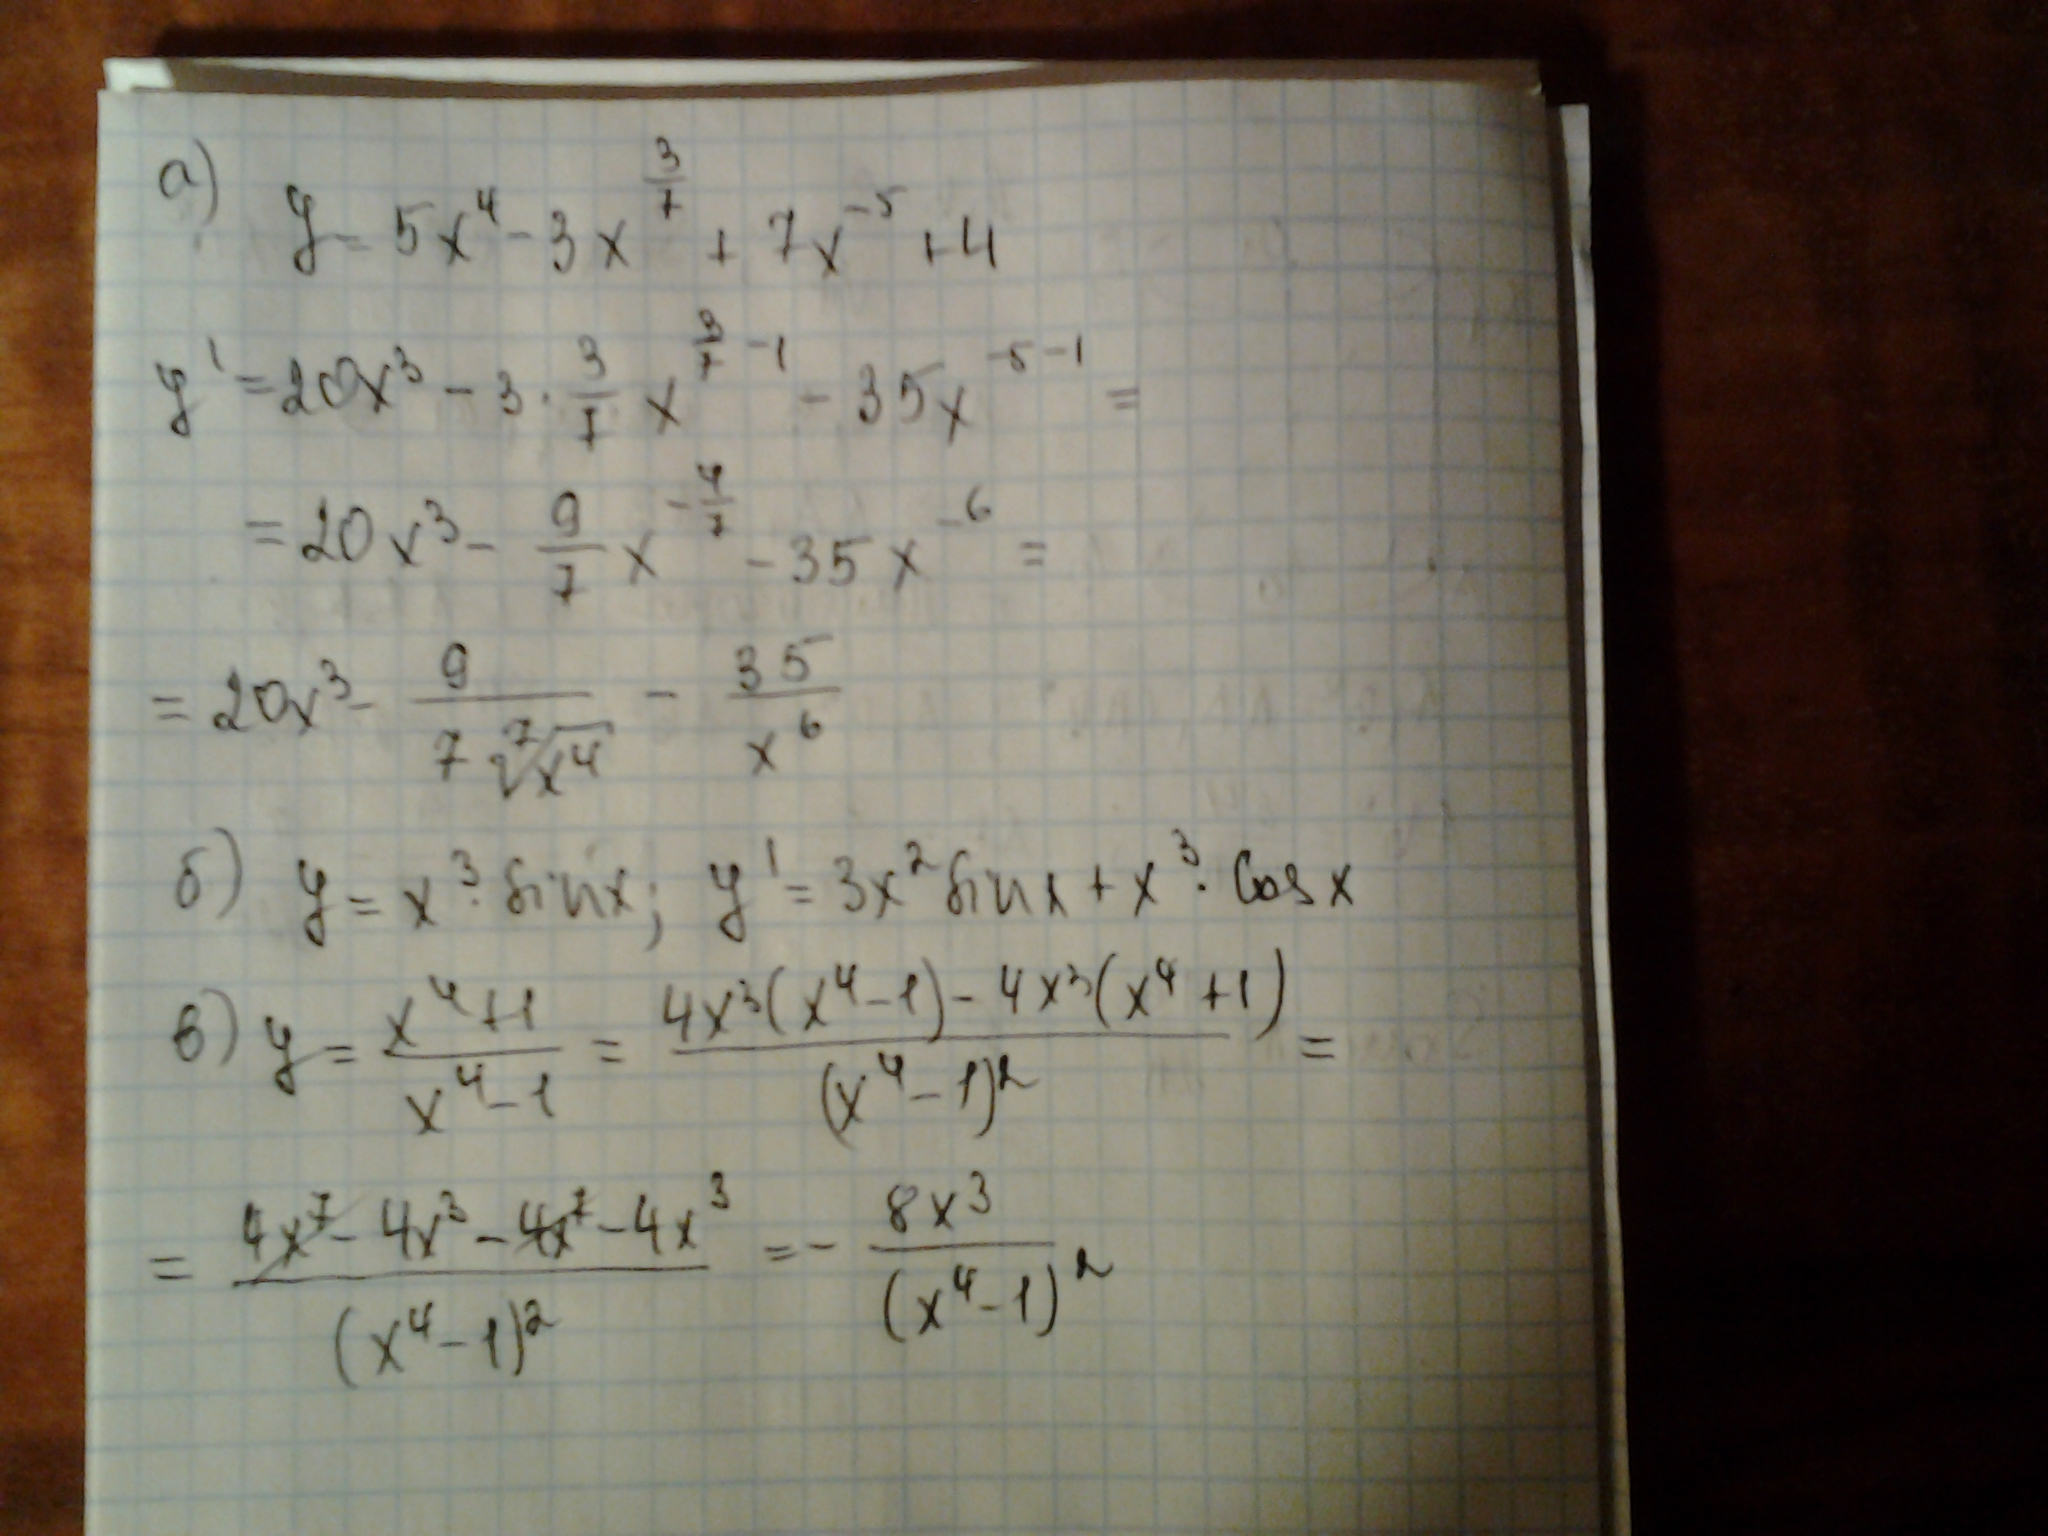 а) y = 5x^4 - 3x^{3/7} + 7x^{-5} + 4
y' = 20x^3 - 3 · 3/7 x^{3/7 - 1} - 35x^{-5-1} =
= 20x^3 - 9/7 x^{-4/7} - 35x^{-6} =
= 20x^3 - 9/(7 \sqrt[7]{x^4}) - 35/x^6
б) y = x^3 · sin x; y' = 3x^2 sin x + x^3 · cos x
в) y = (x^4+1)/(x^4-1) = (4x^3(x^4-1) - 4x^3(x^4+1))/(x^4-1)^2 =
= (4x^7 - 4x^3 - 4x^7 - 4x^3)/(x^4-1)^2 = - 8x^3/(x^4-1)^2